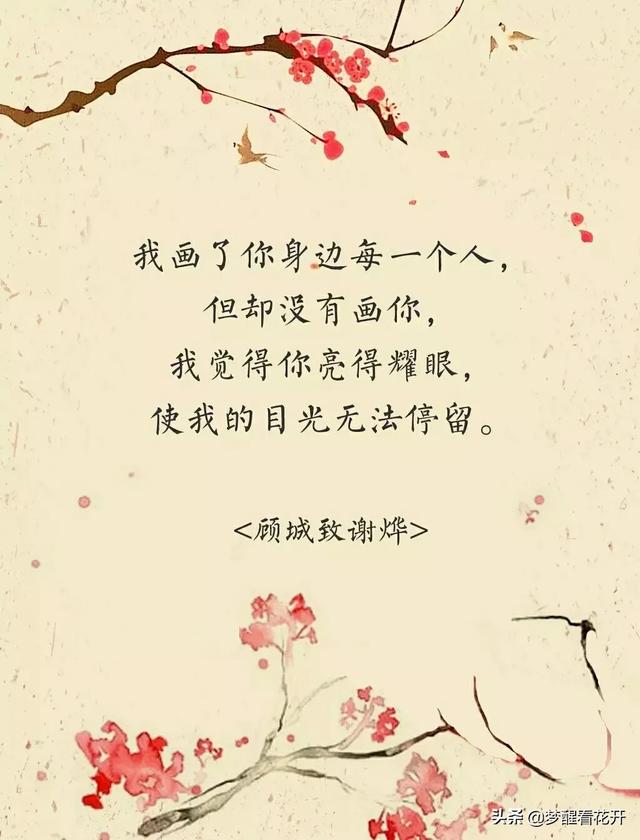 我画了你身边每一个人，
但却没有画你，
我觉得你亮得耀眼，
使我的目光无法停留。
<顾城致谢烨>
头条 @梦醒看花开